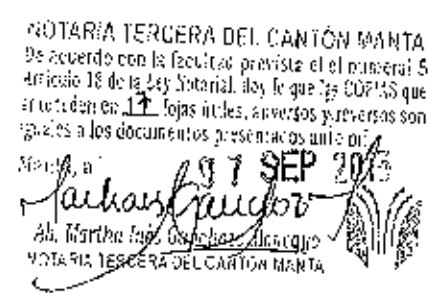 NOTARÍA TERCERA DEL CANTÓN MANTA
De acuerdo con la facultad prevista el el numeral 5
Artículo 18 de la Ley Notarial, doy fe que las COPIAS que
en fojas útiles, anversos y reversos son
iguales a los documentos presentados ante mí
Manta, a SEP
Ab. Martha Inés
NOTARIA TERCERA DEL CANTÓN MANTA